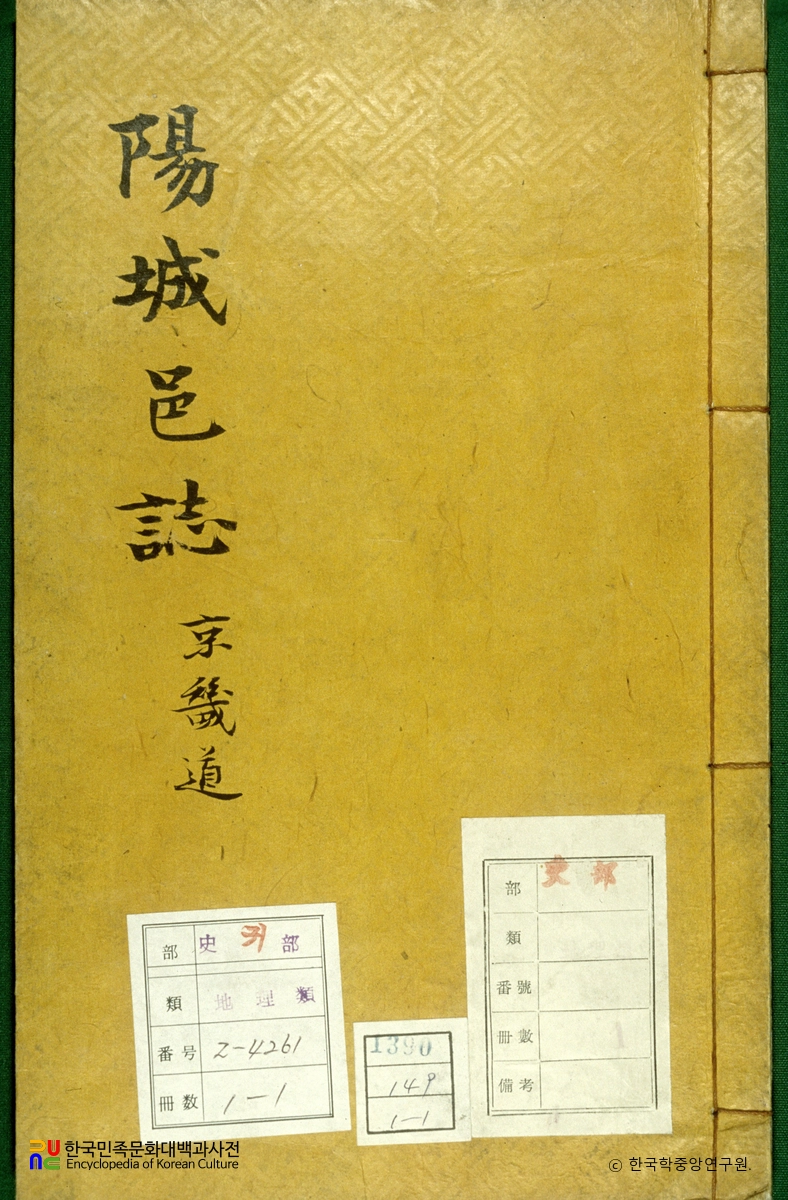 陽城邑誌
京畿道
部 史 귀 部
類 地理類
番号 2-4261
冊数 1-1
1390
149
1-1
部 史部
類
番號
冊數
備考
한국민족문화대백과사전
Encyclopedia of Korean Culture
© 한국학중앙연구원.